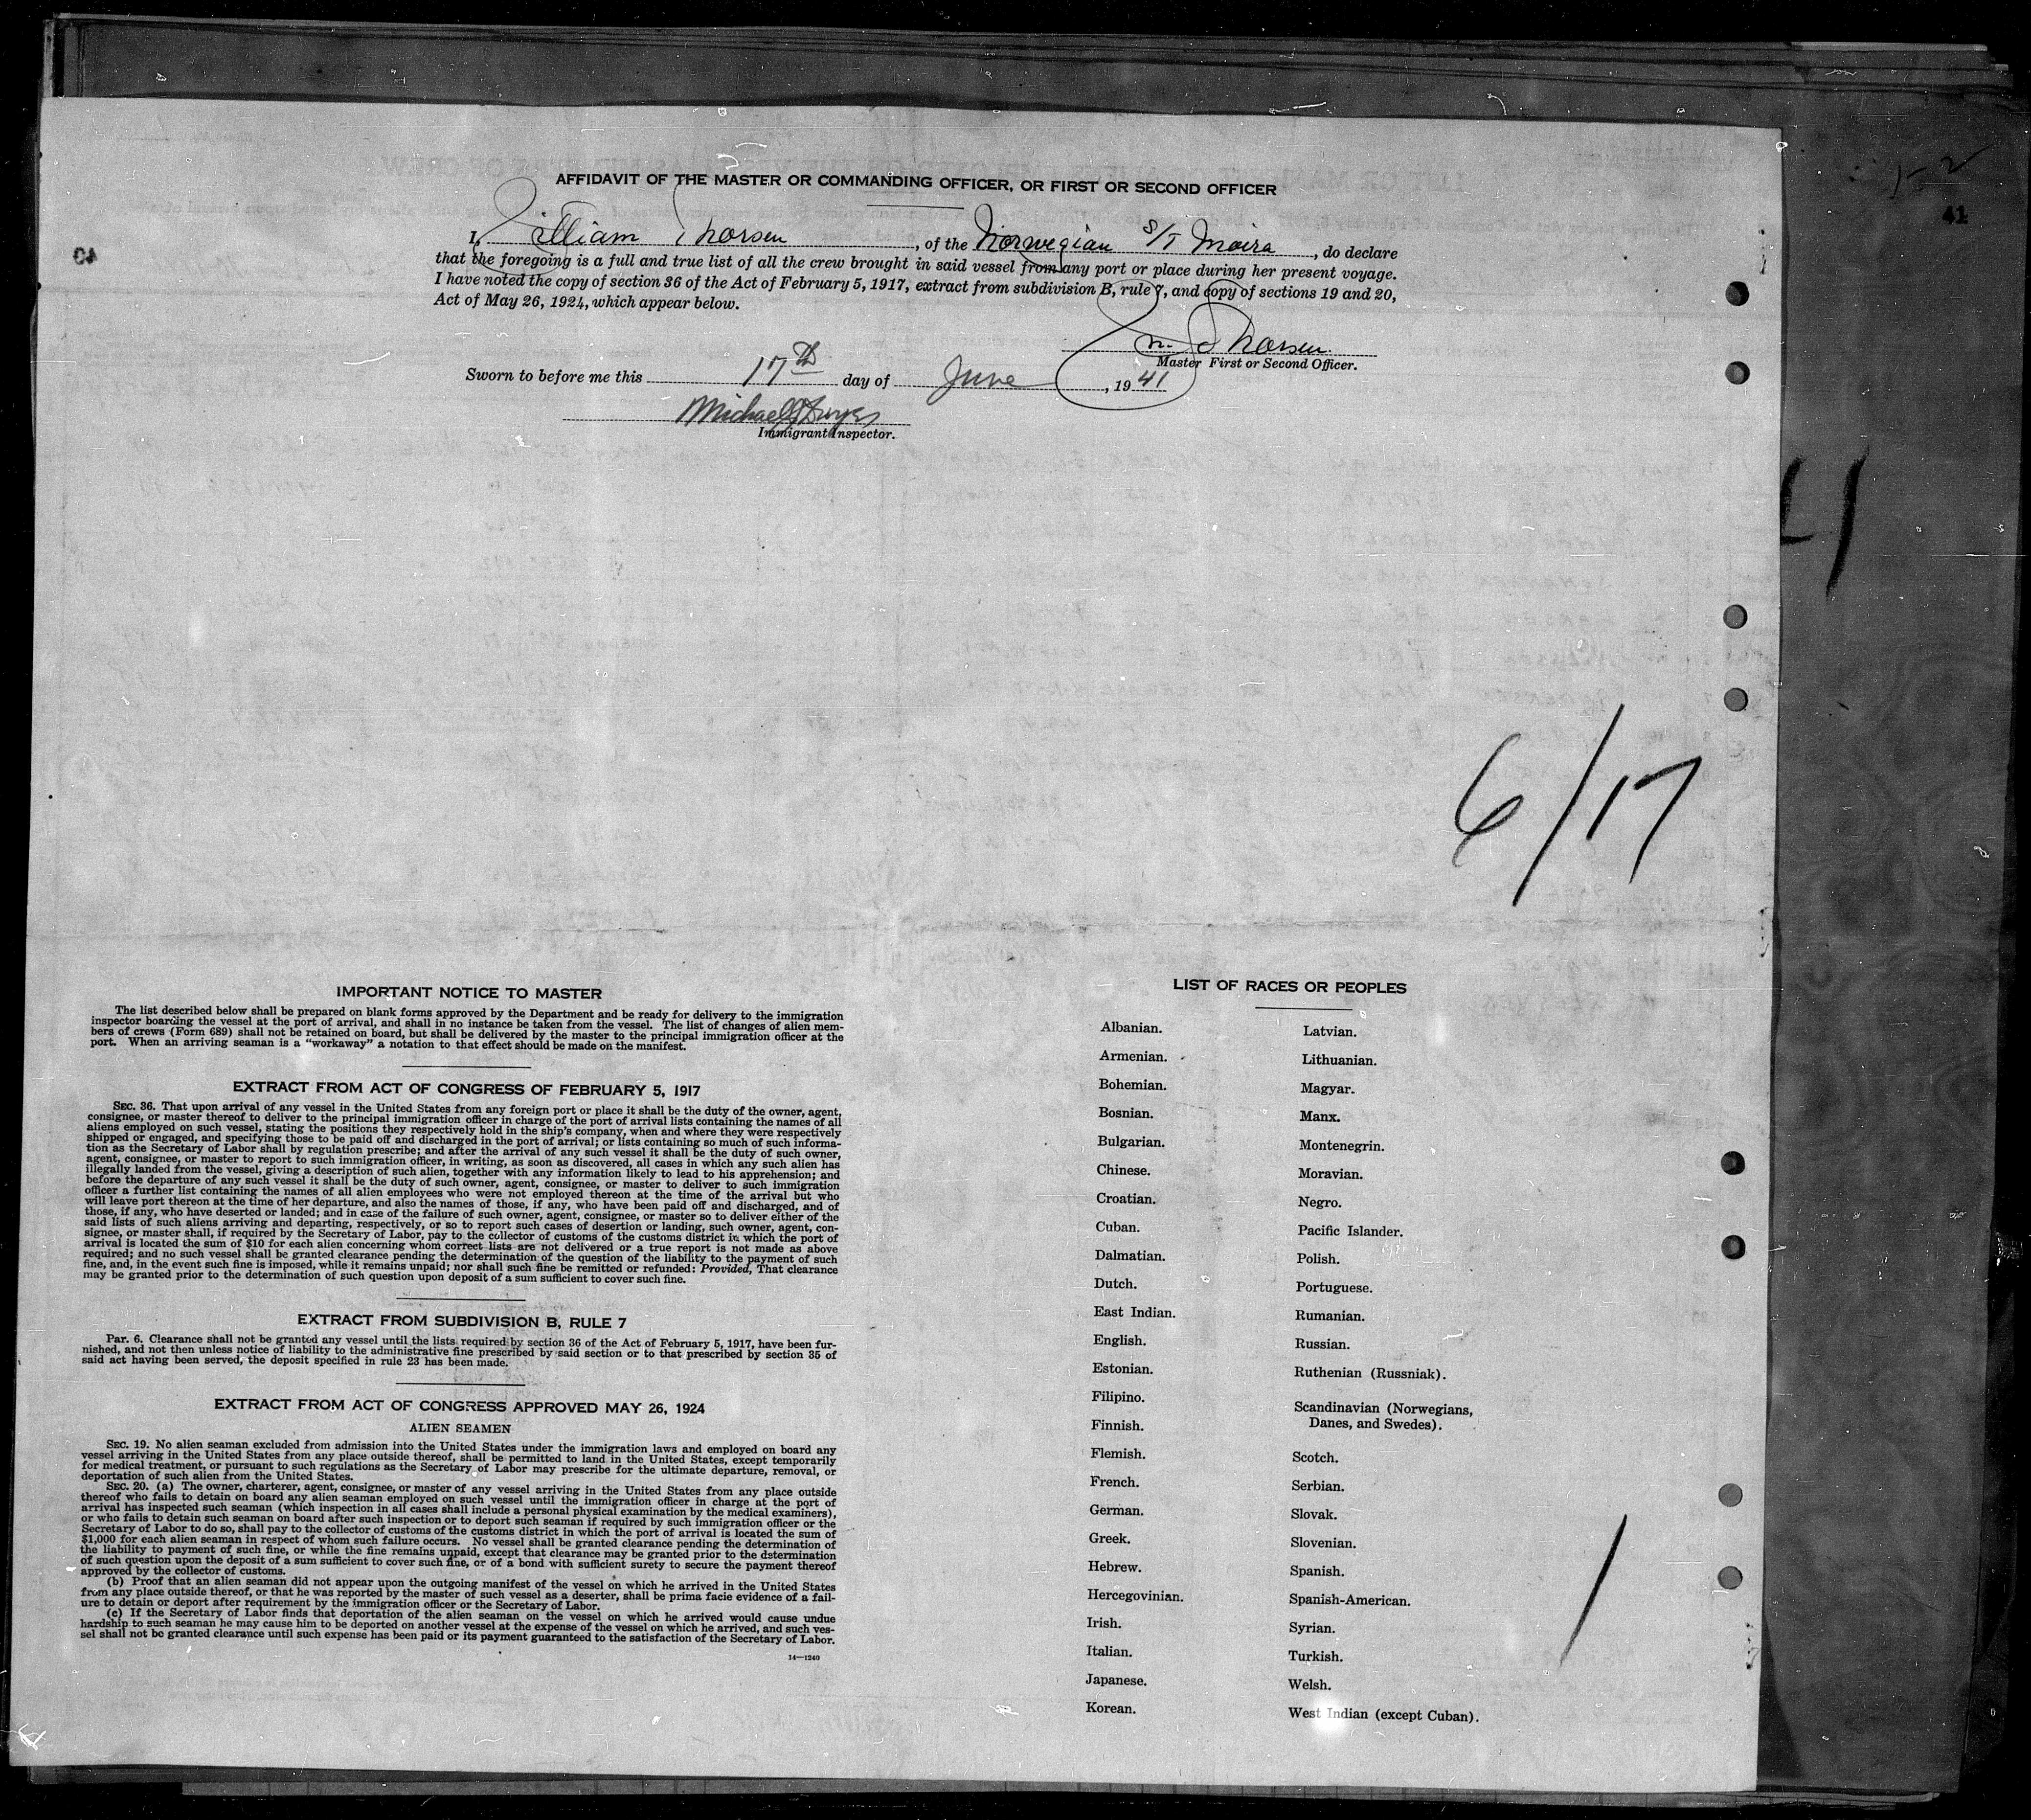 AFFIDAVIT OF THE MASTER OR COMMANDING OFFICER, OR FIRST OR SECOND OFFICER
I, William Thorsen, of the Norwegian S/T Moira, do declare
that the foregoing is a full and true list of all the crew brought in said vessel from any port or place during her present voyage.
I have noted the copy of section 36 of the Act of February 5, 1917, extract from subdivision B, rule 7, and copy of sections 19 and 20,
Act of May 26, 1924, which appear below.
Wm. Thorsen.
Master First or Second Officer.
Sworn to before me this 17th day of June, 1941
Michael J Dwyer
Immigrant Inspector.
41
6/17
IMPORTANT NOTICE TO MASTER
The list described below shall be prepared on blank forms approved by the Department and be ready for delivery to the immigration
inspector boarding the vessel at the port of arrival, and shall in no instance be taken from the vessel. The list of changes of alien mem-
bers of crews (Form 689) shall not be retained on board, but shall be delivered by the master to the principal immigration officer at the
port. When an arriving seaman is a "workaway" a notation to that effect should be made on the manifest.
EXTRACT FROM ACT OF CONGRESS OF FEBRUARY 5, 1917
SEC. 36. That upon arrival of any vessel in the United States from any foreign port or place it shall be the duty of the owner, agent,
consignee, or master thereof to deliver to the principal immigration officer in charge of the port of arrival lists containing the names of all
aliens employed on such vessel, stating the positions they respectively hold in the ship's company, when and where they were respectively
shipped or engaged, and specifying those to be paid off and discharged in the port of arrival; or lists containing so much of such informa-
tion as the Secretary of Labor shall by regulation prescribe; and after the arrival of any such vessel it shall be the duty of such owner,
agent, consignee, or master to report to such immigration officer, in writing, as soon as discovered, all cases in which any such alien has
illegally landed from the vessel, giving a description of such alien, together with any information likely to lead to his apprehension; and
before the departure of any such vessel it shall be the duty of such owner, agent, consignee, or master to deliver to such immigration
officer a further list containing the names of all alien employees who were not employed thereon at the time of the arrival but who
will leave port thereon at the time of her departure, and also the names of those, if any, who have been paid off and discharged, and of
those, if any, who have deserted or landed; and in case of the failure of such owner, agent, consignee, or master so to deliver either of the
said lists of such aliens arriving and departing, respectively, or so to report such cases of desertion or landing, such owner, agent, con-
signee, or master shall, if required by the Secretary of Labor, pay to the collector of customs of the customs district in which the port of
arrival is located the sum of $10 for each alien concerning whom correct lists are not delivered or a true report is not made as above
required; and no such vessel shall be granted clearance pending the determination of the question of the liability to the payment of such
fine, and, in the event such fine is imposed, while it remains unpaid; nor shall such fine be remitted or refunded: Provided, That clearance
may be granted prior to the determination of such question upon deposit of a sum sufficient to cover such fine.
EXTRACT FROM SUBDIVISION B, RULE 7
Par. 6. Clearance shall not be granted any vessel until the lists required by section 36 of the Act of February 5, 1917, have been fur-
nished, and not then unless notice of liability to the administrative fine prescribed by said section or to that prescribed by section 35 of
said act having been served, the deposit specified in rule 23 has been made.
EXTRACT FROM ACT OF CONGRESS APPROVED MAY 26, 1924
ALIEN SEAMEN
SEC. 19. No alien seaman excluded from admission into the United States under the immigration laws and employed on board any
vessel arriving in the United States from any place outside thereof, shall be permitted to land in the United States, except temporarily
for medical treatment, or pursuant to such regulations as the Secretary of Labor may prescribe for the ultimate departure, removal, or
deportation of such alien from the United States.
SEC. 20. (a) The owner, charterer, agent, consignee, or master of any vessel arriving in the United States from any place outside
thereof who fails to detain on board any alien seaman employed on such vessel until the immigration officer in charge at the port of
arrival has inspected such seaman (which inspection in all cases shall include a personal physical examination by the medical examiners),
or who fails to detain such seaman on board after such inspection or to deport such seaman if required by such immigration officer or the
Secretary of Labor to do so, shall pay to the collector of customs of the customs district in which the port of arrival is located the sum of
$1,000 for each alien seaman in respect of whom such failure occurs. No vessel shall be granted clearance pending the determination of
the liability to payment of such fine, or while the fine remains unpaid, except that clearance may be granted prior to the determination
of such question upon the deposit of a sum sufficient to cover such fine, or of a bond with sufficient surety to secure the payment thereof
approved by the collector of customs.
(b) Proof that an alien seaman did not appear upon the outgoing manifest of the vessel on which he arrived in the United States
from any place outside thereof, or that he was reported by the master of such vessel as a deserter, shall be prima facie evidence of a fail-
ure to detain or deport after requirement by the immigration officer or the Secretary of Labor.
(c) If the Secretary of Labor finds that deportation of the alien seaman on the vessel on which he arrived would cause undue
hardship to such seaman he may cause him to be deported on another vessel at the expense of the vessel on which he arrived, and such ves-
sel shall not be granted clearance until such expense has been paid or its payment guaranteed to the satisfaction of the Secretary of Labor.
14—1240
LIST OF RACES OR PEOPLES
Albanian.
Armenian.
Bohemian.
Bosnian.
Bulgarian.
Chinese.
Croatian.
Cuban.
Dalmatian.
Dutch.
East Indian.
English.
Estonian.
Filipino.
Finnish.
Flemish.
French.
German.
Greek.
Hebrew.
Hercegovinian.
Irish.
Italian.
Japanese.
Korean.
Latvian.
Lithuanian.
Magyar.
Manx.
Montenegrin.
Moravian.
Negro.
Pacific Islander.
Polish.
Portuguese.
Rumanian.
Russian.
Ruthenian (Russniak).
Scandinavian (Norwegians,
Danes, and Swedes).
Scotch.
Serbian.
Slovak.
Slovenian.
Spanish.
Spanish-American.
Syrian.
Turkish.
Welsh.
West Indian (except Cuban).